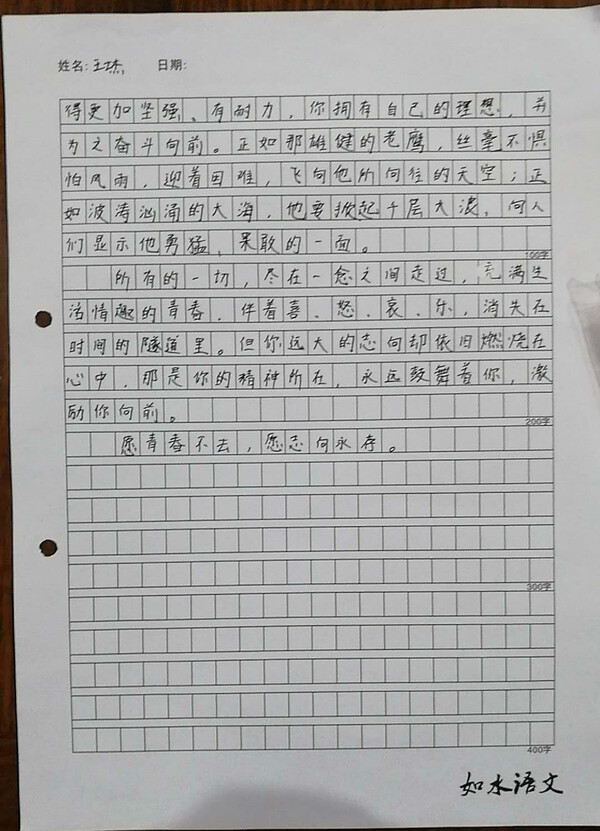 姓名：王杰 日期：
得更加坚强、有耐力，你拥有自己的理想，并
为之奋斗向前。正如那雄健的老鹰，丝毫不惧
怕风雨，迎着困难，飞向他所向往的天空；正
如波涛汹涌的大海，他要掀起千层大浪，向人
们显示他勇猛、果敢的一面。
100字
所有的一切，尽在一念之间走过，充满生
活情趣的青春，伴着喜、怒、哀、乐，消失在
时间的隧道里。但你远大的志向却依旧燃烧在
心中，那是你的精神所在，永远鼓舞着你，激
励你向前。
200字
愿青春不去，愿志向永存。
300字
400字
如水语文